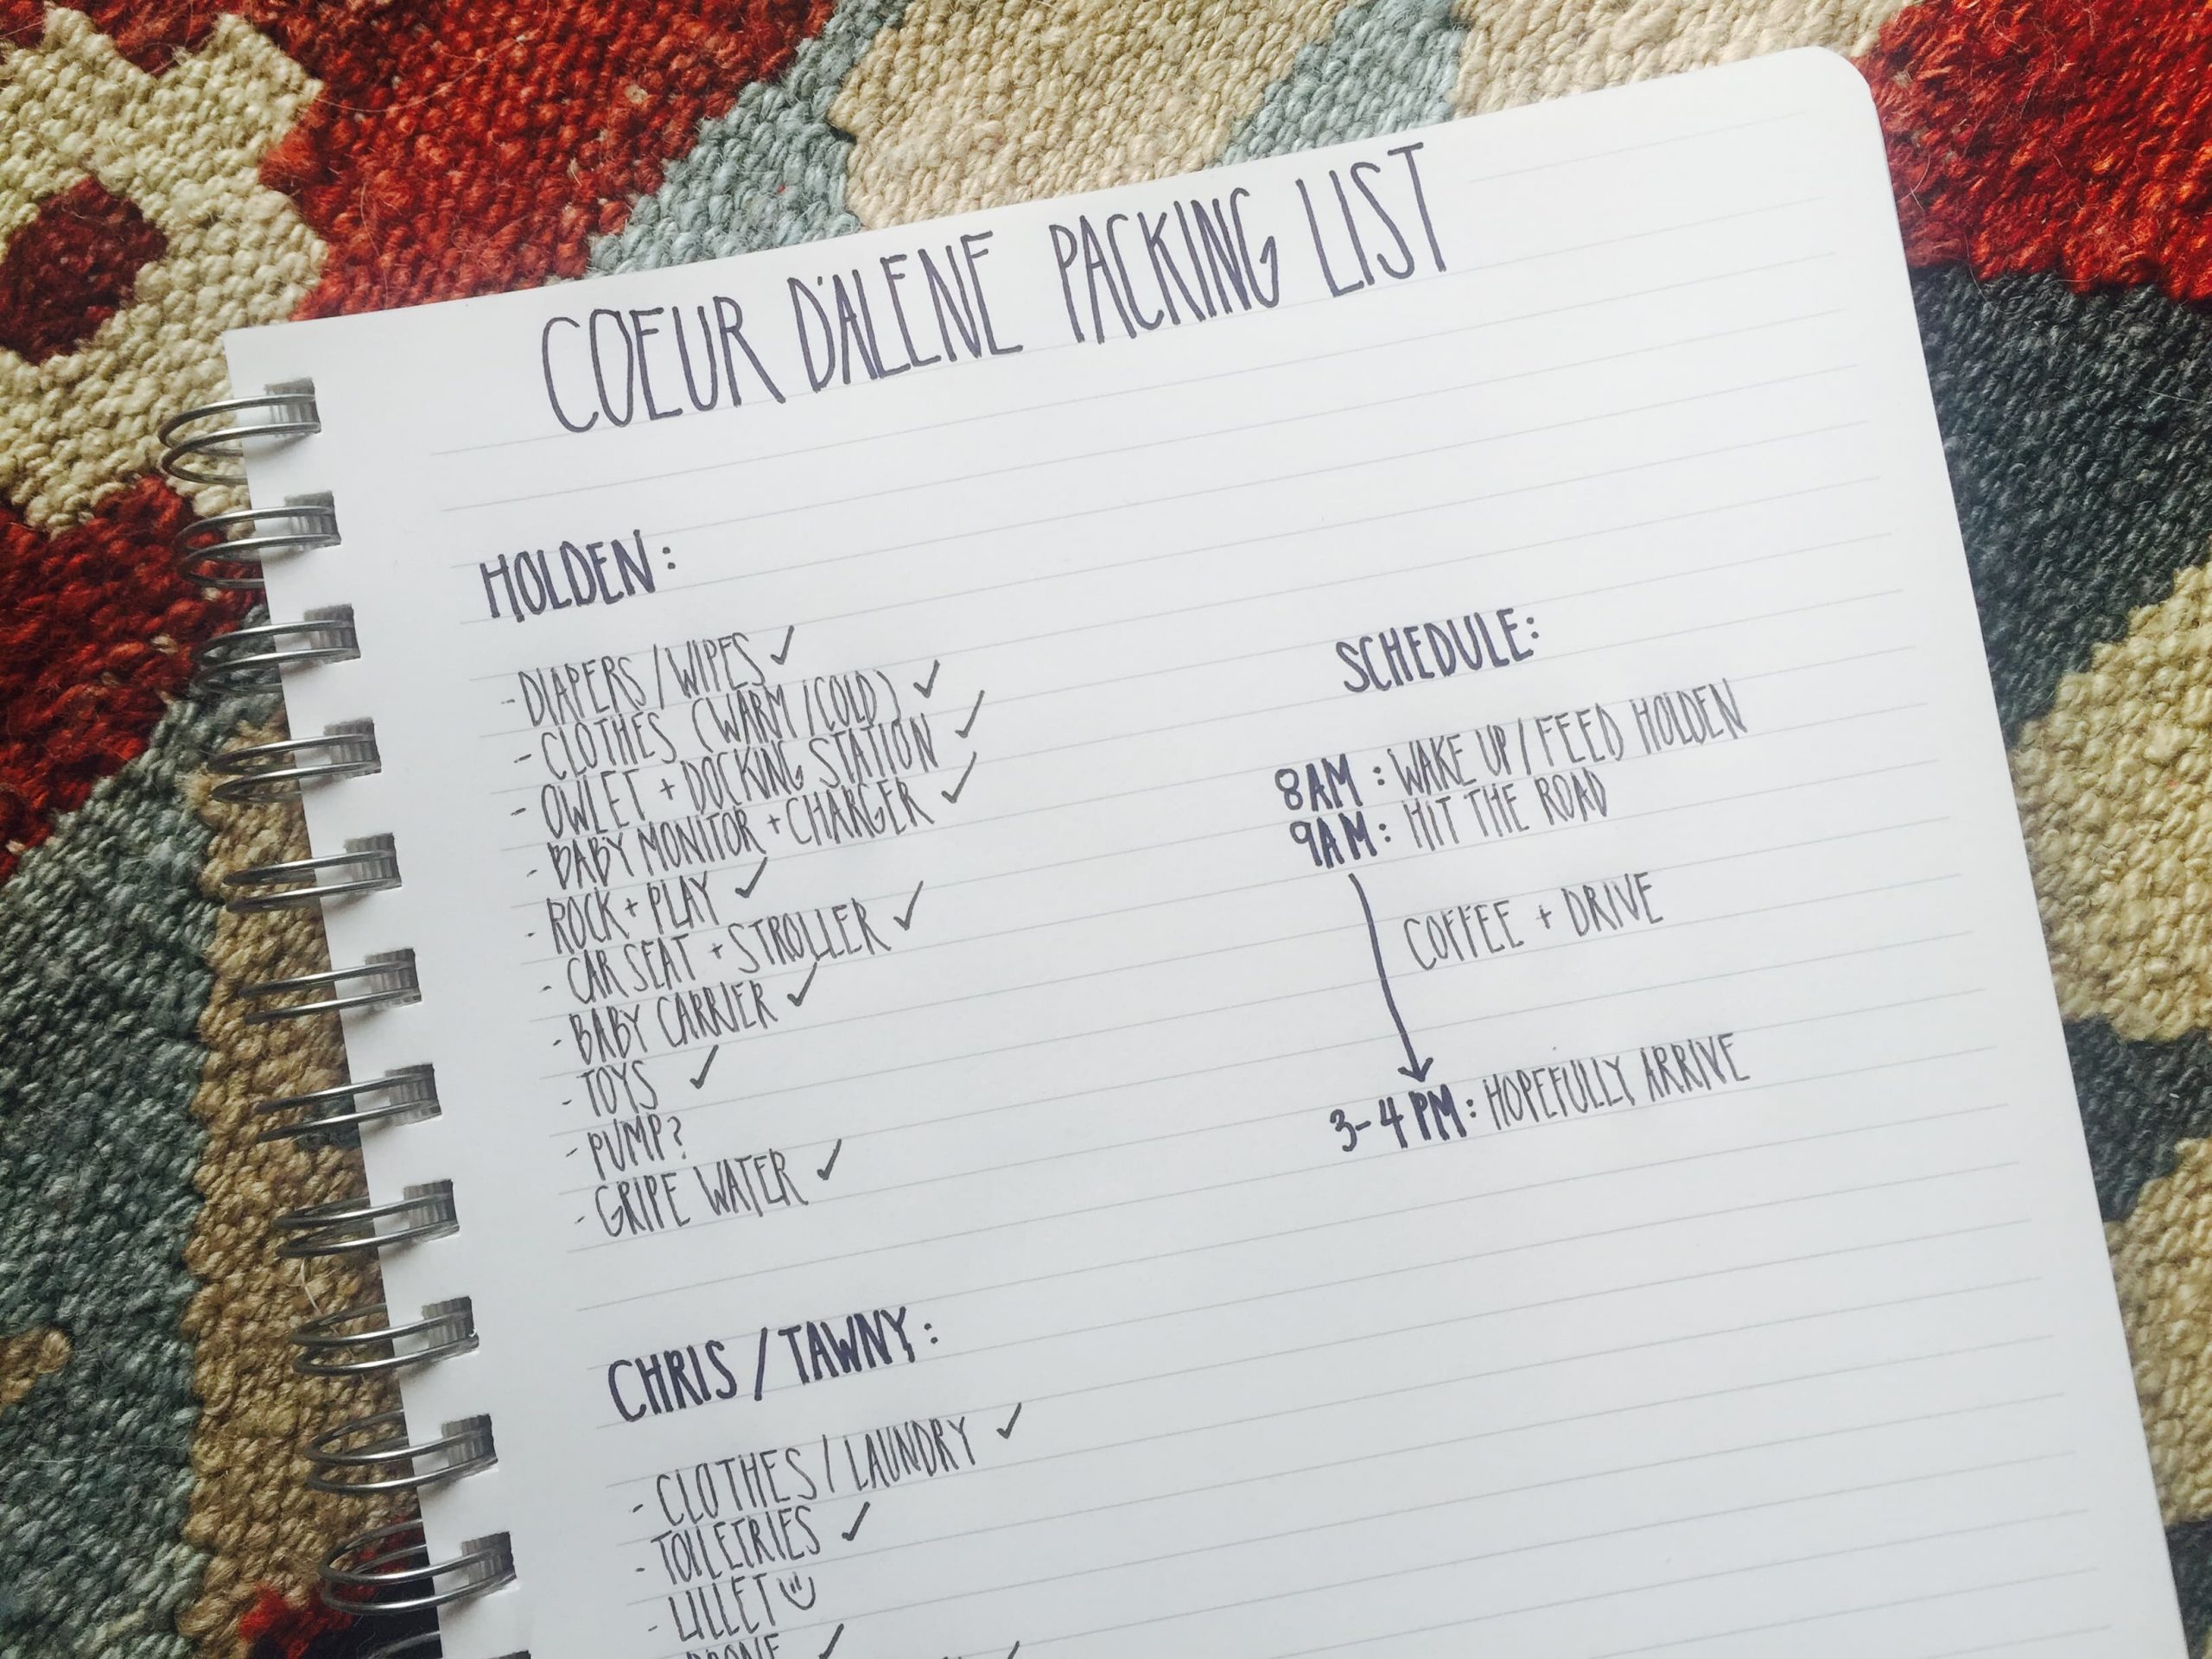 COEUR D'ALENE PACKING LIST
HOLDEN:
- DIAPERS / WIPES ✓
- CLOTHES (WARM / COLD) ✓
- OWLET + DOCKING STATION ✓
- BABY MONITOR + CHARGER ✓
- ROCK + PLAY ✓
- CAR SEAT + STROLLER ✓
- BABY CARRIER ✓
- TOYS ✓
- PUMP?
- GRIPE WATER ✓
CHRIS / TAWNY:
- CLOTHES / LAUNDRY ✓
- TOILETRIES ✓
- LILLET
DRONE ✓
SCHEDULE:
8AM : WAKE UP / FEED HOLDEN
9AM : HIT THE ROAD
COFFEE + DRIVE
3-4 PM : HOPEFULLY ARRIVE